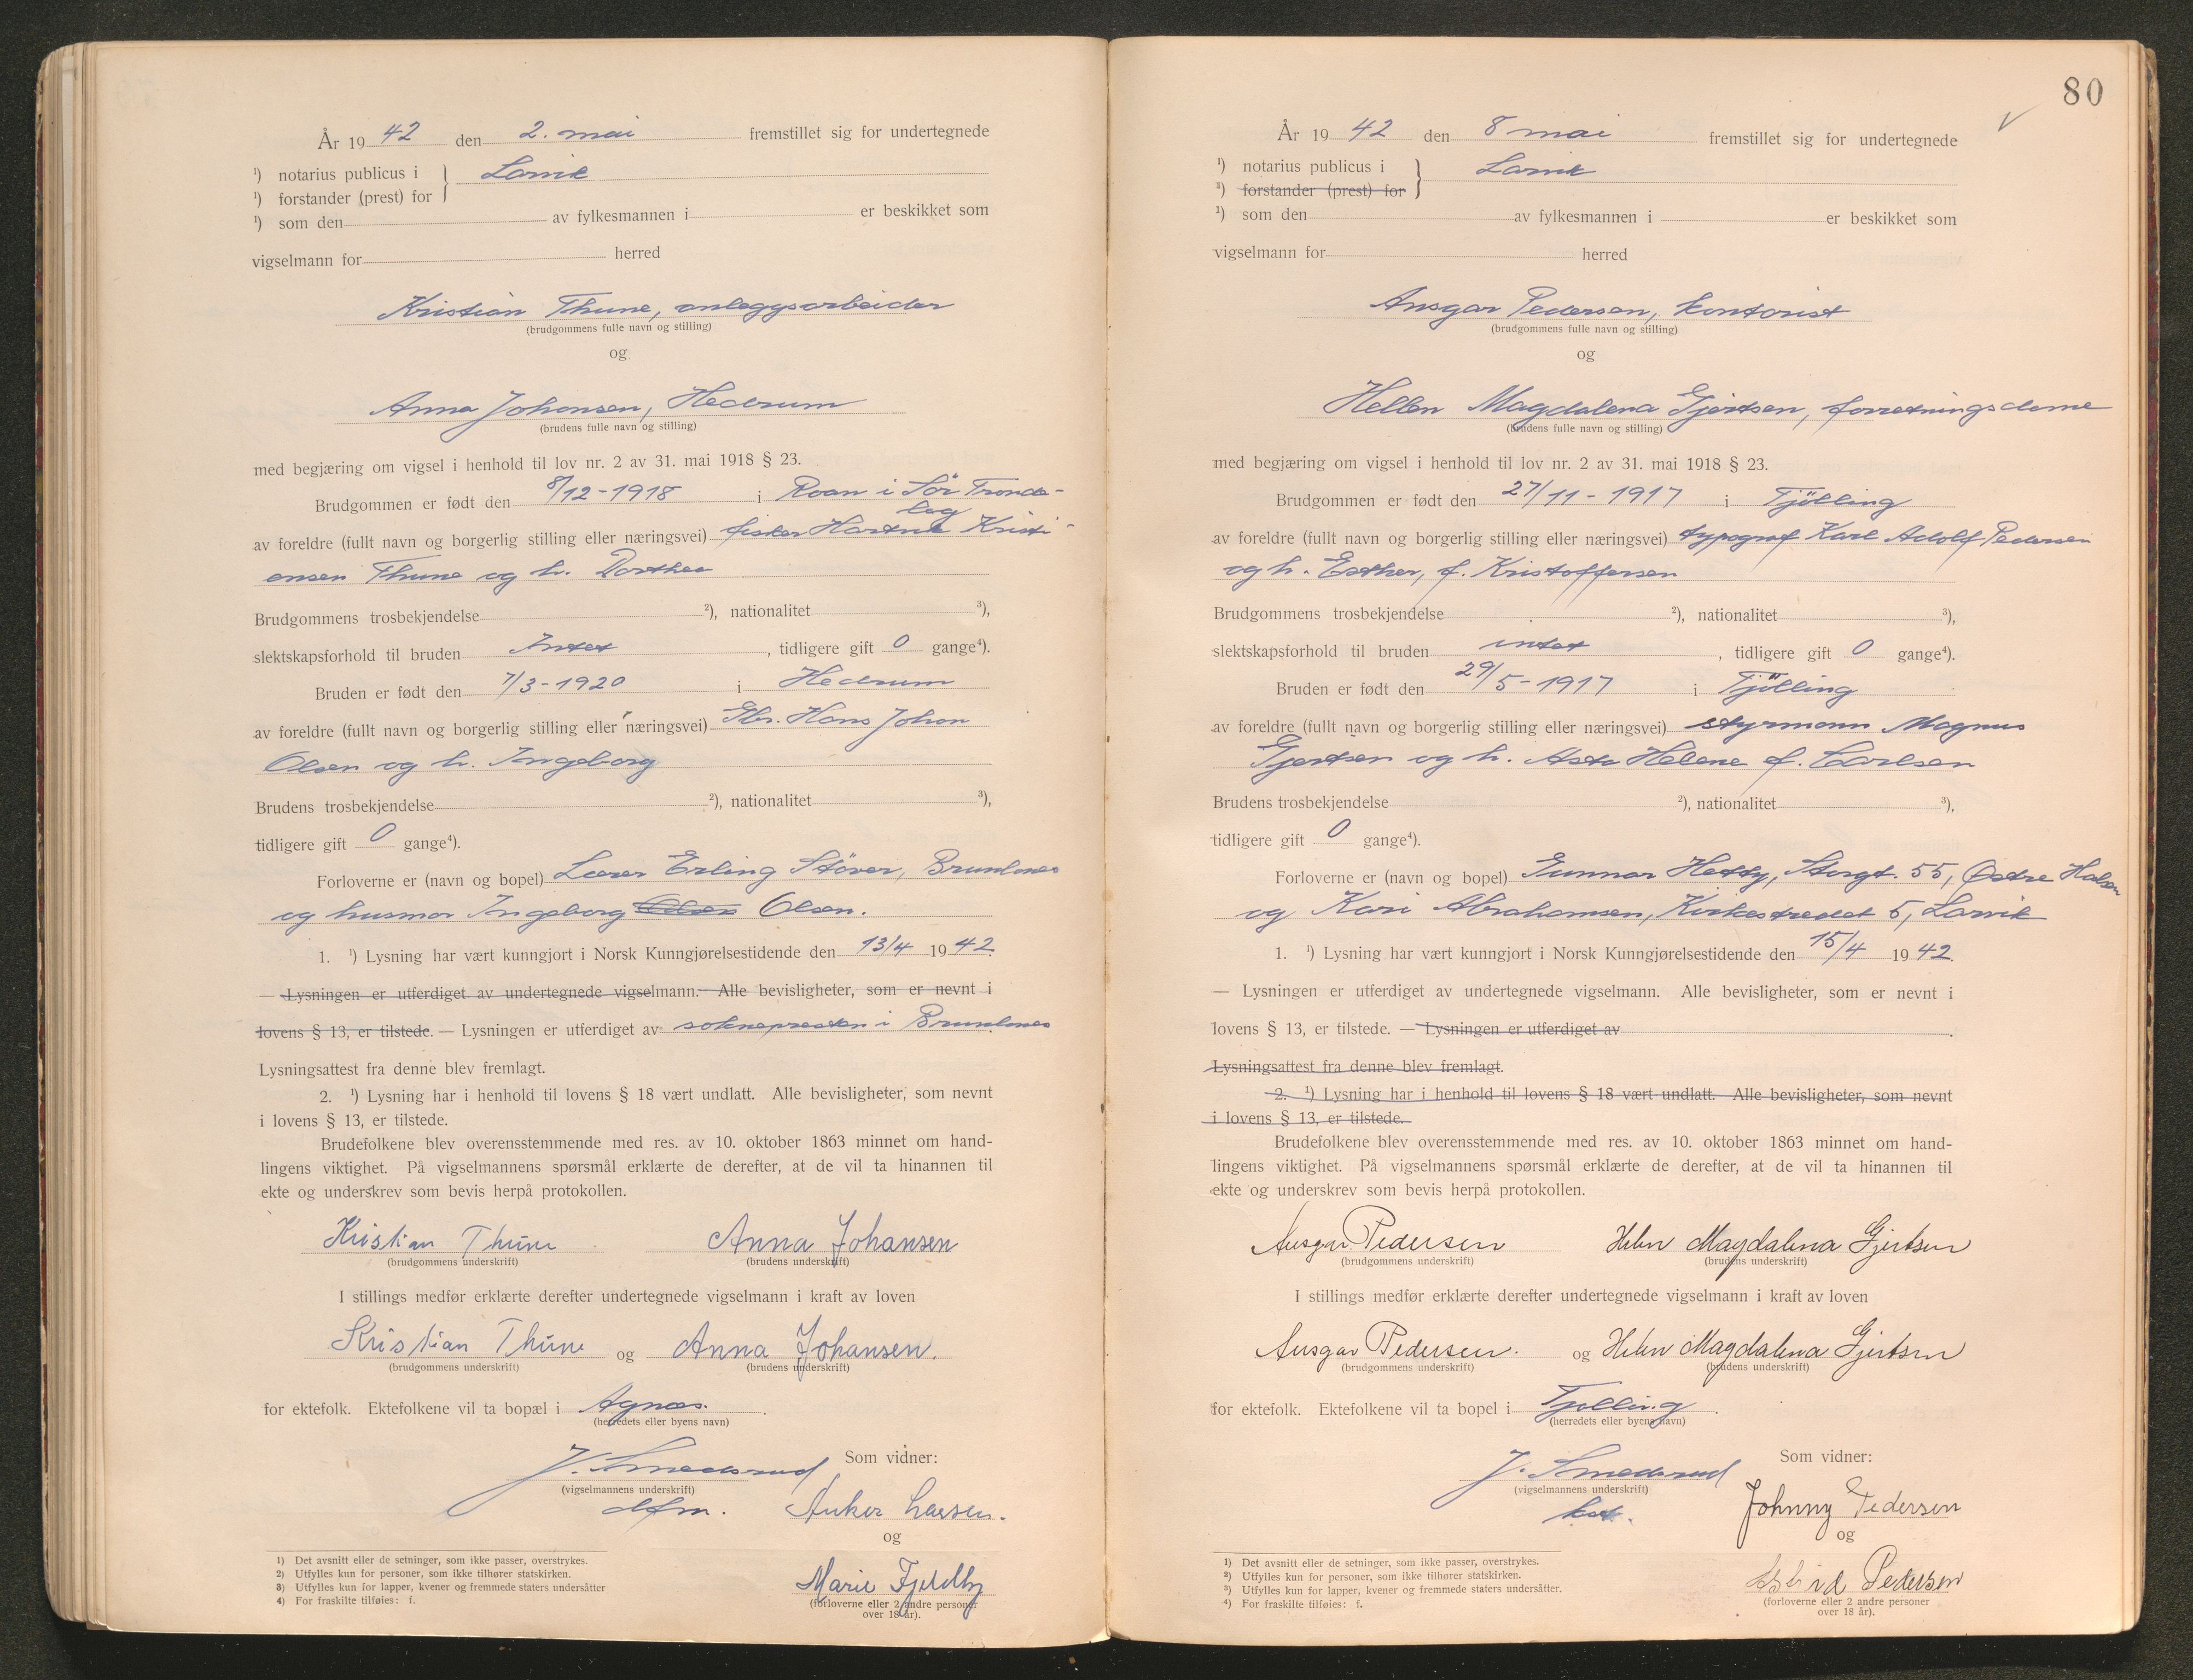 År 19 42 den 2. mai fremstillet sig for undertegnede
¹) notarius publicus i } Larvik
¹) forstander (prest) for
¹) som den av fylkesmannen i er beskikket som
vigselmann for herred
Kristian Thune, anleggsarbeider
(brudgommens fulle navn og stilling)
og
Anna Johansen, Hedrum
(brudens fulle navn og stilling)
med begjæring om vigsel i henhold til lov nr. 2 av 31. mai 1918 § 23.
Brudgommen er født den 8/12-1918 i Roan i Sör Tronde-
lag
av foreldre (fullt navn og borgerlig stilling eller næringsvei) fisker Kristi-
ansen Thune og h. Dorthea
Brudgommens trosbekjendelse ²), nationalitet ³),
slektskapsforhold til bruden Intet, tidligere gift 0 gange⁴).
Bruden er født den 7/3-1920 i Hedrum
av foreldre (fullt navn og borgerlig stilling eller næringsvei) Gbr. Hans Johan
Olsen og h. Ingeborg
Brudens trosbekjendelse ²), nationalitet ³),
tidligere gift 0 gange⁴).
Forloverne er (navn og bopel) Lærer Erling Stöver, Brunlanes
og husmor Ingeborg Olsen.
1. ¹) Lysning har vært kunngjort i Norsk Kunngjørelsestidende den 13/4 19 42.
— Lysningen er utferdiget av undertegnede vigselmann. Alle bevisligheter, som er nevnt i
lovens § 13, er tilstede. — Lysningen er utferdiget av soknepresten i Brunlanes
Lysningsattest fra denne blev fremlagt.
2. ¹) Lysning har i henhold til lovens § 18 vært undlatt. Alle bevisligheter, som nevnt
i lovens § 13, er tilstede.
Brudefolkene blev overensstemmende med res. av 10. oktober 1863 minnet om hand-
lingens viktighet. På vigselmannens spørsmål erklærte de derefter, at de vil ta hinannen til
ekte og underskrev som bevis herpå protokollen.
Kristian Thune Anna Johansen
(brudgommens underskrift) (brudens underskrift)
I stillings medfør erklærte derefter undertegnede vigselmann i kraft av loven
Kristian Thune og Anna Johansen.
(brudgommens underskrift) (brudens underskrift)
for ektefolk. Ektefolkene vil ta bopæl i Agnes.
(herredets eller byens navn)
J. Smedsrud Som vidner:
(vigselmannens underskrift)
dfm. Anker Larsen.
og
Marie Fjeldby
(forloverne eller 2 andre personer
over 18 år).
1) Det avsnitt eller de setninger, som ikke passer, overstrykes.
2) Utfylles kun for personer, som ikke tilhører statskirken.
3) Utfylles kun for lapper, kvener og fremmede staters undersåtter
4) For fraskilte tilføies: f.
80
År 19 42 den 8 mai fremstillet sig for undertegnede
¹) notarius publicus i } Larvik
¹) forstander (prest) for
¹) som den av fylkesmannen i er beskikket som
vigselmann for herred
Ansgar Pedersen, kontorist
(brudgommens fulle navn og stilling)
og
Hellen Magdalena Gjertsen, forretningsdame
(brudens fulle navn og stilling)
med begjæring om vigsel i henhold til lov nr. 2 av 31. mai 1918 § 23.
Brudgommen er født den 27/11-1917 i Tjölling
av foreldre (fullt navn og borgerlig stilling eller næringsvei) typograf Karl Adolf Pedersen
og h. Esther, f. Kristoffersen
Brudgommens trosbekjendelse ²), nationalitet ³),
slektskapsforhold til bruden intet, tidligere gift 0 gange⁴).
Bruden er født den 29/5-1917 i Tjölling
av foreldre (fullt navn og borgerlig stilling eller næringsvei) styrmann Magnus
Gjertsen og h. Asta Helene f. Carlsen
Brudens trosbekjendelse ²), nationalitet ³),
tidligere gift 0 gange⁴).
Forloverne er (navn og bopel) Gunnar Hetty, Storgt. 55, Østre Halsen
og Kari Abrahamsen, Kirkestredet 5, Larvik
1. ¹) Lysning har vært kunngjort i Norsk Kunngjørelsestidende den 15/4 19 42.
— Lysningen er utferdiget av undertegnede vigselmann. Alle bevisligheter, som er nevnt i
lovens § 13, er tilstede. — Lysningen er utferdiget av .
Lysningsattest fra denne blev fremlagt.
2. ¹) Lysning har i henhold til lovens § 18 vært undlatt. Alle bevisligheter, som nevnt
i lovens § 13, er tilstede.
Brudefolkene blev overensstemmende med res. av 10. oktober 1863 minnet om hand-
lingens viktighet. På vigselmannens spørsmål erklærte de derefter, at de vil ta hinannen til
ekte og underskrev som bevis herpå protokollen.
Ansgar Pedersen Helen Magdalena Gjertsen
(brudgommens underskrift) (brudens underskrift)
I stillings medfør erklærte derefter undertegnede vigselmann i kraft av loven
Ansgar Pedersen. og Helen Magdalena Gjertsen
(brudgommens underskrift) (brudens underskrift)
for ektefolk. Ektefolkene vil ta bopel i Tjølling.
(herredets eller byens navn)
J. Smedsrud Som vidner:
(vigselmannens underskrift)
kst. Johnny Pedersen
og
Astrid Pedersen
(forloverne eller 2 andre personer
over 18 år).
1) Det avsnitt eller de setninger, som ikke passer, overstrykes.
2) Utfylles kun for personer, som ikke tilhører statskirken.
3) Utfylles kun for lapper, kvener og fremmede staters undersåtter.
4) For fraskilte tilføies: f.